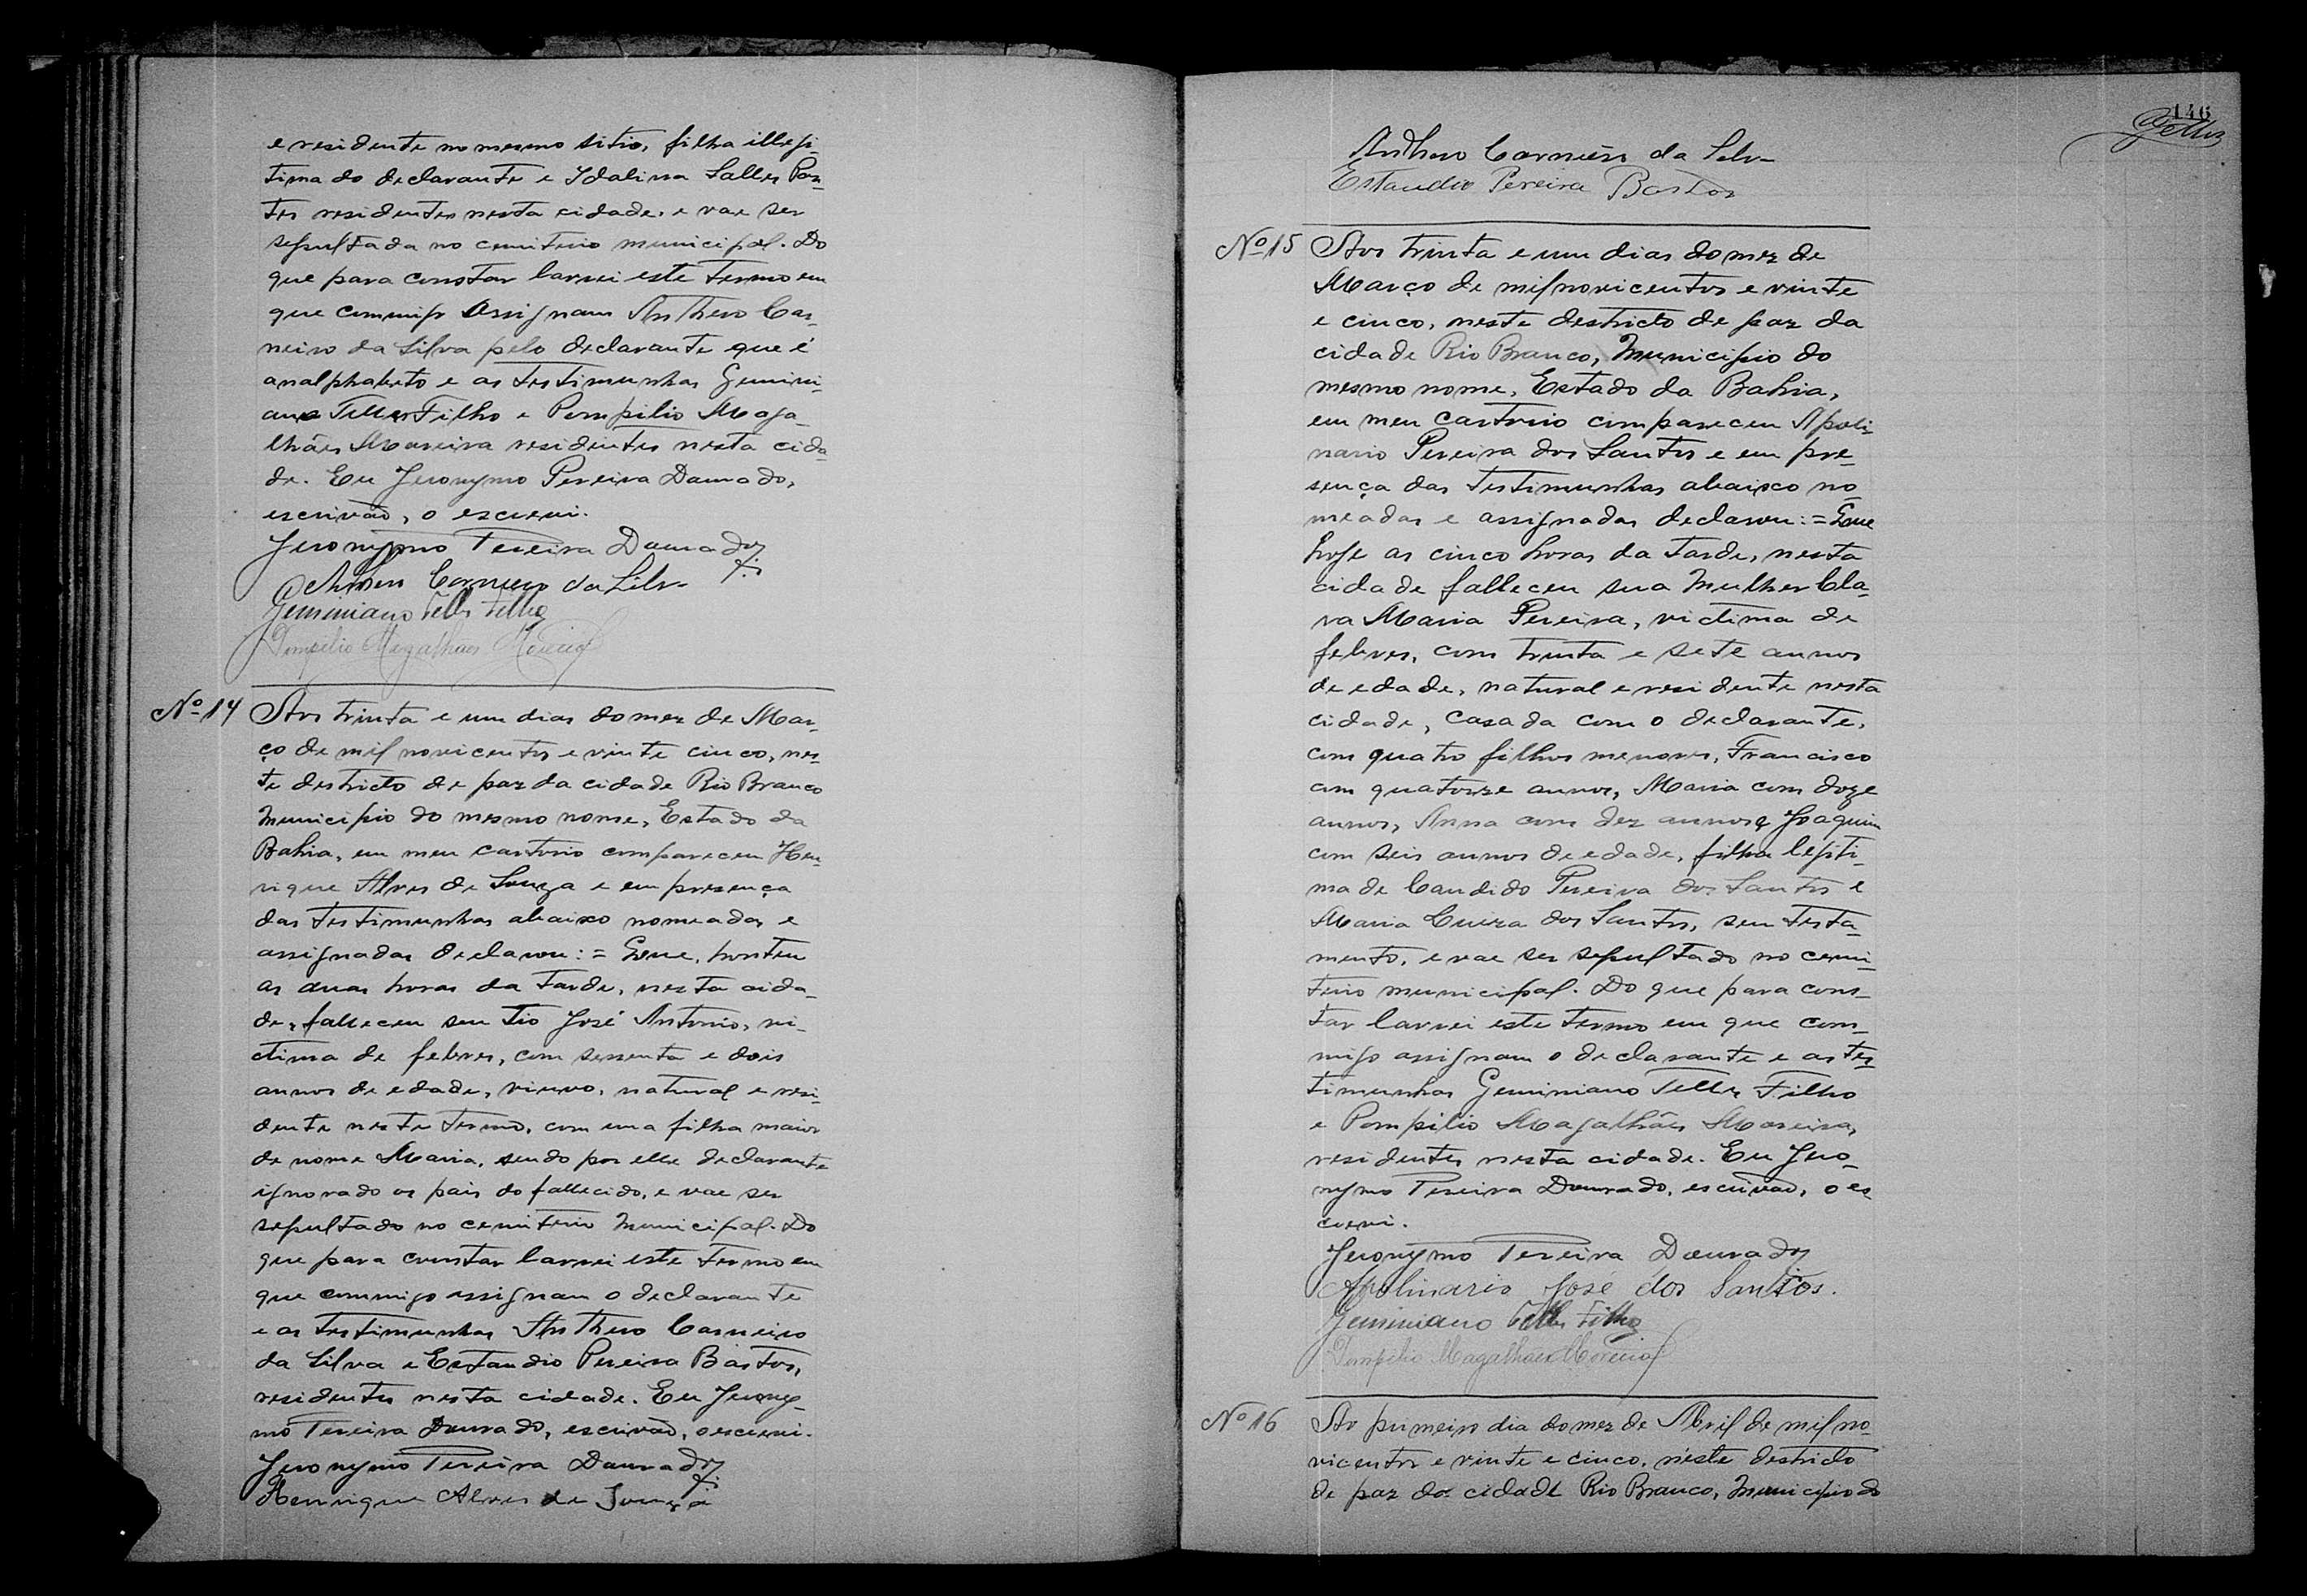 e residente no mesmo sitio, filha illegi-
tima do declarante e Idalina Salles Pon-
tes residentes nesta cidade, e vae ser
sepultada no cemiterio municipal. Do
que para constar lavrei este termo em
que commigo assignam Anthero Car-
neiro da Silva pelo declarante que é
analphabeto e as testimunhas Gemini-
ano Telles Filho e Pompilio Maga-
lhães Moreira residentes nesta cida-
de. Eu Jeronymo Pereira Dourado,
escrivão, o escrevi.
Jeronymo Pereira Dourado
Anthero Carneiro da Silva
Geminiano Telles Filho
Pompilio Magalhães Moreira
Nº 14 Aos trinta e um dias do mez de Mar-
ço de mil novicentos e vinte cinco, nes-
te destricto de paz da cidade Rio Branco
Municipio do mesmo nome, Estado da
Bahia, em meu cartorio compareceu Hen-
rique Alves de Souza e em presença
das testimunhas abaixo nomeadas e
assignadas declarou: = Que, hontem
as duas horas da tarde, nesta cida-
de, falleceu seu tio José Antonio, vi-
ctima de febres, com sessenta e dois
annos de edade, viuvo, natural e resi-
dente neste termo, com uma filha maior
de nome Maria, sendo por elle declarante
ignorado os pais do fallecido, e vae ser
sepultado no cemiterio Municipal. Do
que para constar lavrei este termo em
que commigo assignam o declarante
e as testimunhas Anthero Carneiro
da Silva e Estaudio Pereira Bastos,
residentes nesta cidade. Eu Jerony-
mo Pereira Dourado, escrivão, o escrevi.
Jeronymo Pereira Dourado
Henrique Alves de Souza
146
Telles
Anthero Carneiro da Silva
Estaudio Pereira Bastos
Nº 15 Aos trinta e um dias do mez de
Março de mil novicentos e vinte
e cinco, neste destricto de paz da
cidade Rio Branco, Municipio do
mesmo nome, Estado da Bahia,
em meu cartorio compareceu Apoli-
nario Pereira dos Santos e em pre-
sença das testimunhas abaixo no-
meadas e assignadas declarou: = Que
hoje as cinco horas da tarde, nesta
cidade falleceu sua mulher Cla-
ra Maria Pereira, victima de
febres, com trinta e sete annos
de edade, natural e residente nesta
cidade, casada com o declarante,
com quatro filhos menores, Francisco
com quatorze annos, Maria com doze
annos, Anna com dez annos e Joaquim
com seis annos de edade, filha legiti-
ma de Candido Pereira dos Santos e
Maria Luiza dos Santos, sem testa-
mento, e vae ser sepultado no cemi-
terio municipal. Do que para cons-
tar lavrei este termo em que com-
migo assignam o declarante e as tes-
timunhas Geminiano Telles Filho
e Pompilio Magalhães Moreira,
residentes nesta cidade. Eu Jero-
nymo Pereira Dourado, escrivão, o es-
crevi.
Jeronymo Pereira Dourado
Apolinario José dos Santos.
Geminiano Telles Filho
Pompilio Magalhães Moreira
Nº 16 Ao primeiro dia do mez de Abril de mil no-
vicentos e vinte e cinco, neste destricto
de paz da cidade Rio Branco, Municipio do